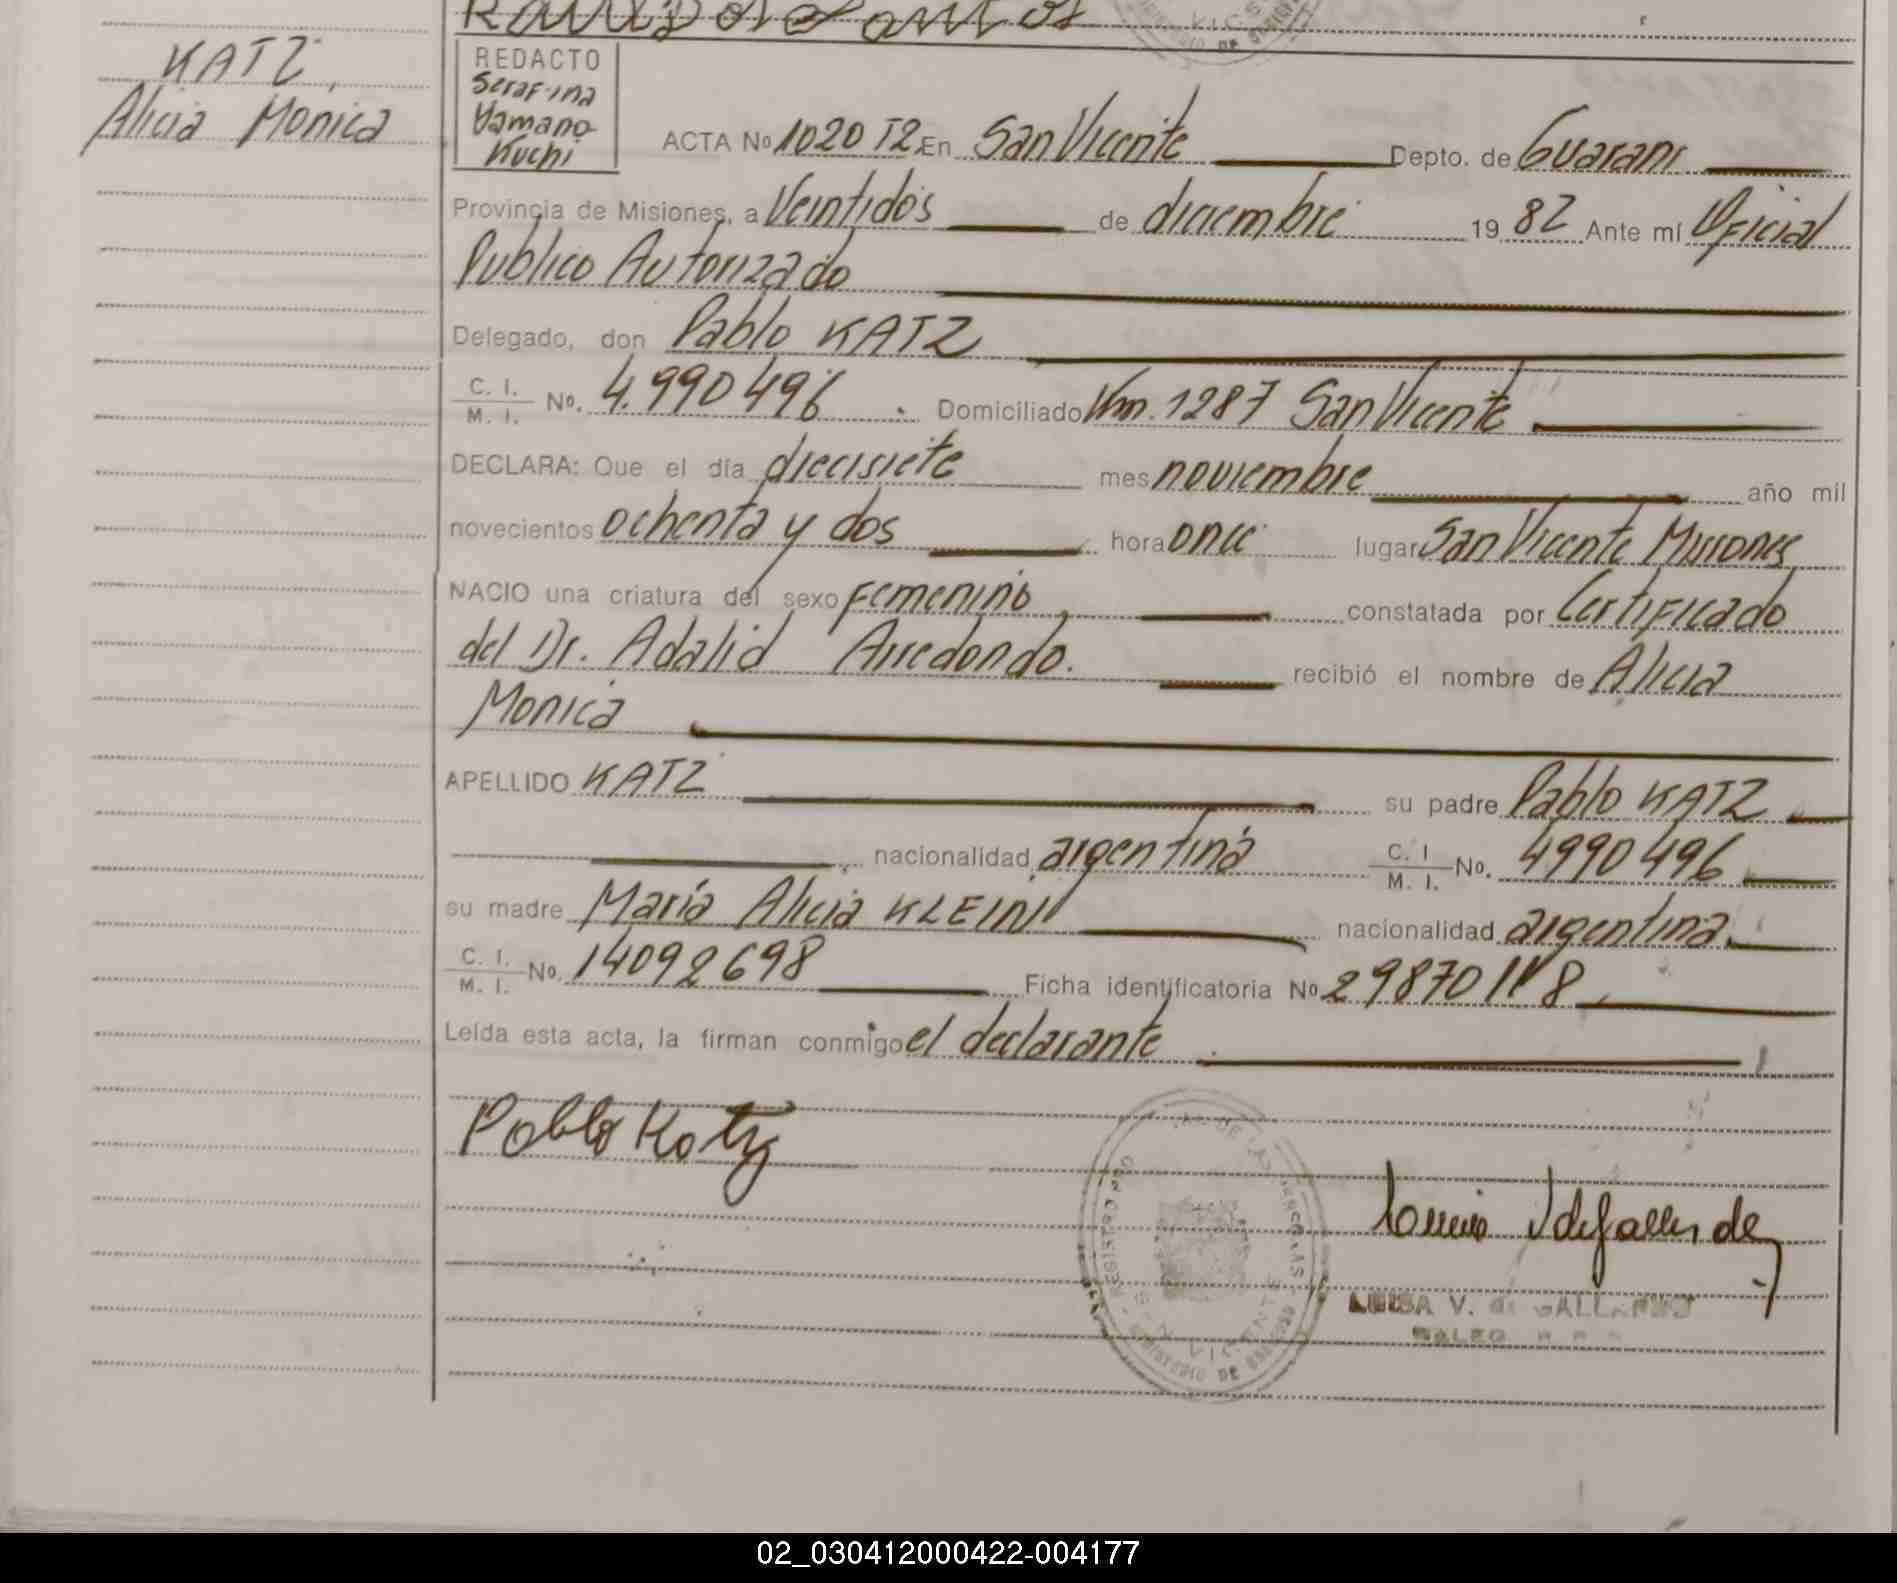 KATZ,
Alicia Monica
REDACTO
Serafina
Yamano-
Kuchi
ACTA Nº 1020 T2 En San Vicente Depto. de Guarani
Provincia de Misiones, a Veintidós de diciembre 1982 Ante mí Oficial
Publico Autorizado
Delegado, don Pablo KATZ
C. I. / M. I. Nº. 4.990496. Domiciliado Km. 1287 San Vicente
DECLARA: Que el día diecisiete mes noviembre año mil
novecientos ochenta y dos hora once lugar San Vicente Misiones
NACIO una criatura del sexo femenino, constatada por Certificado
del Dr. Adalid Arredondo. recibió el nombre de Alicia
Monica
APELLIDO KATZ su padre Pablo KATZ
nacionalidad argentina C. I / M. I. Nº. 4990496
su madre María Alicia KLEIN nacionalidad argentina.
C. I. / M. I. Nº. 14092698 Ficha identificatoria Nº
Leída esta acta, la firman conmigo el declarante
Pablo Katz
LUISA V. de
02_030412000422-004177